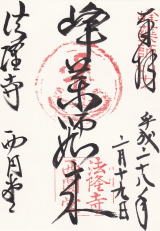 奉拝
平成二十八年
二月十九日
峰薬師如来
法隆寺
西円堂
法隆寺